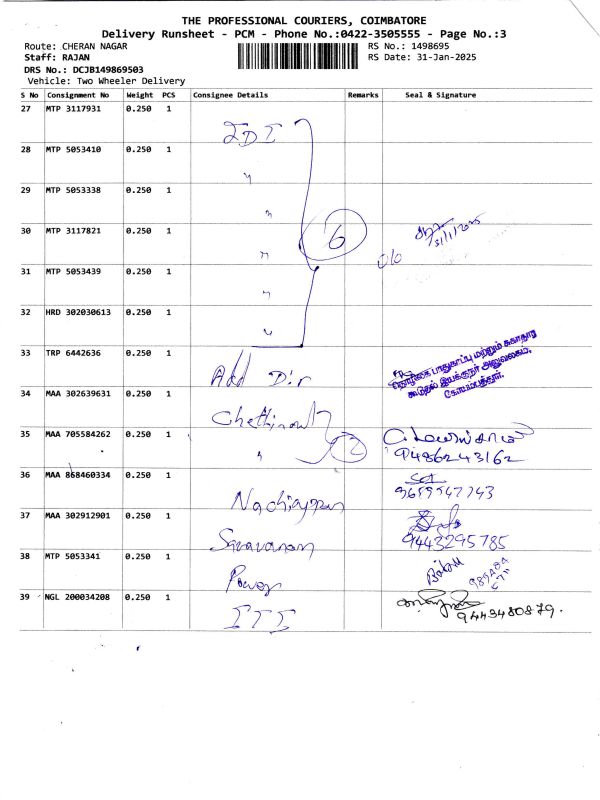 THE PROFESSIONAL COURIERS, COIMBATORE
Delivery Runsheet - PCM - Phone No.:0422-3505555 - Page No.:3
Route: CHERAN NAGAR
RS No.: 1498695
Staff: RAJAN
RS Date: 31-Jan-2025
DRS No.: DCJB149869503
Vehicle: Two Wheeler Delivery
S No Consignment No Weight PCS Consignee Details Remarks Seal & Signature
27 MTP 3117931 0.250 1 IDI
28 MTP 5053410 0.250 1 "
29 MTP 5053338 0.250 1 "
30 MTP 3117821 0.250 1 " 6 31/1/2025
31 MTP 5053439 0.250 1 "
32 HRD 302030613 0.250 1 "
33 TRP 6442636 0.250 1 Add Dir
தொழிலக பாதுகாப்பு மற்றும் சுகாதார
கூடுதல் இயக்குநர் அலுவலகம்,
கோயம்புத்தூர்.
34 MAA 302639631 0.250 1 Chettinad
35 MAA 705584262 0.250 1 " 2
9486243162
36 MAA 868460334 0.250 1 Nachiappan
9659547743
37 MAA 302912901 0.250 1 Saravanan
9443295785
38 MTP 5053341 0.250 1 Power
39 NGL 200034208 0.250 1 ITI
9443480879.